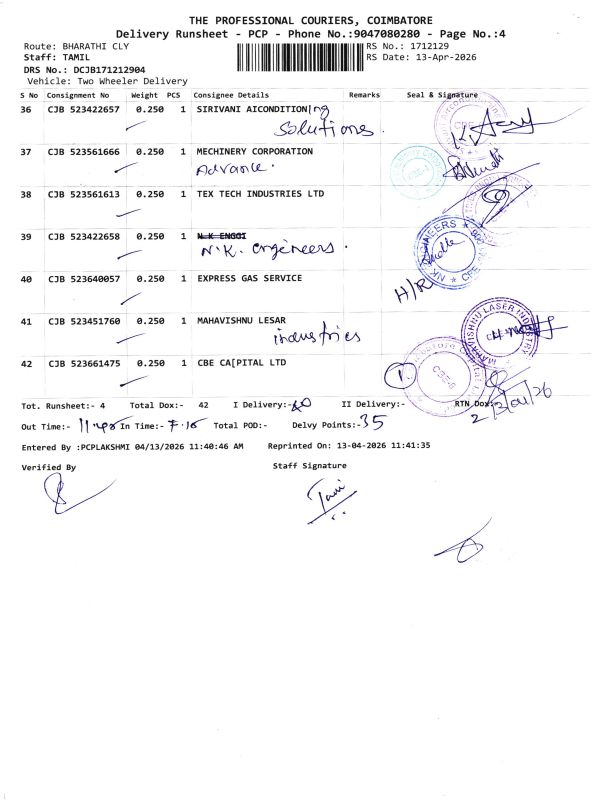 THE PROFESSIONAL COURIERS, COIMBATORE
Delivery Runsheet - PCP - Phone No.:9047080280 - Page No.:4
Route: BHARATHI CLY RS No.: 1712129
Staff: TAMIL RS Date: 13-Apr-2026
DRS No.: DCJB171212904
Vehicle: Two Wheeler Delivery
S No Consignment No Weight PCS Consignee Details Remarks Seal & Signature
36 CJB 523422657 0.250 1 SIRIVANI AICONDITION|ng
Solutions.
37 CJB 523561666 0.250 1 MECHINERY CORPORATION
Advance.
38 CJB 523561613 0.250 1 TEX TECH INDUSTRIES LTD
39 CJB 523422658 0.250 1 N K ENGGI
N.K. engineers.
NK ENGINEERS CBE
40 CJB 523640057 0.250 1 EXPRESS GAS SERVICE
H/R
41 CJB 523451760 0.250 1 MAHAVISHNU LESAR
industries
MAHAVISHNU LASER INDUSTRY
42 CJB 523661475 0.250 1 CBE CA[PITAL LTD
1
Tot. Runsheet:- 4 Total Dox:- 42 I Delivery:- II Delivery:- RTN Dox:-
Out Time:- 11.40 In Time:- 7.10 Total POD:- Delvy Points:- 35
Entered By :PCPLAKSHMI 04/13/2026 11:40:46 AM Reprinted On: 13-04-2026 11:41:35
Verified By Staff Signature